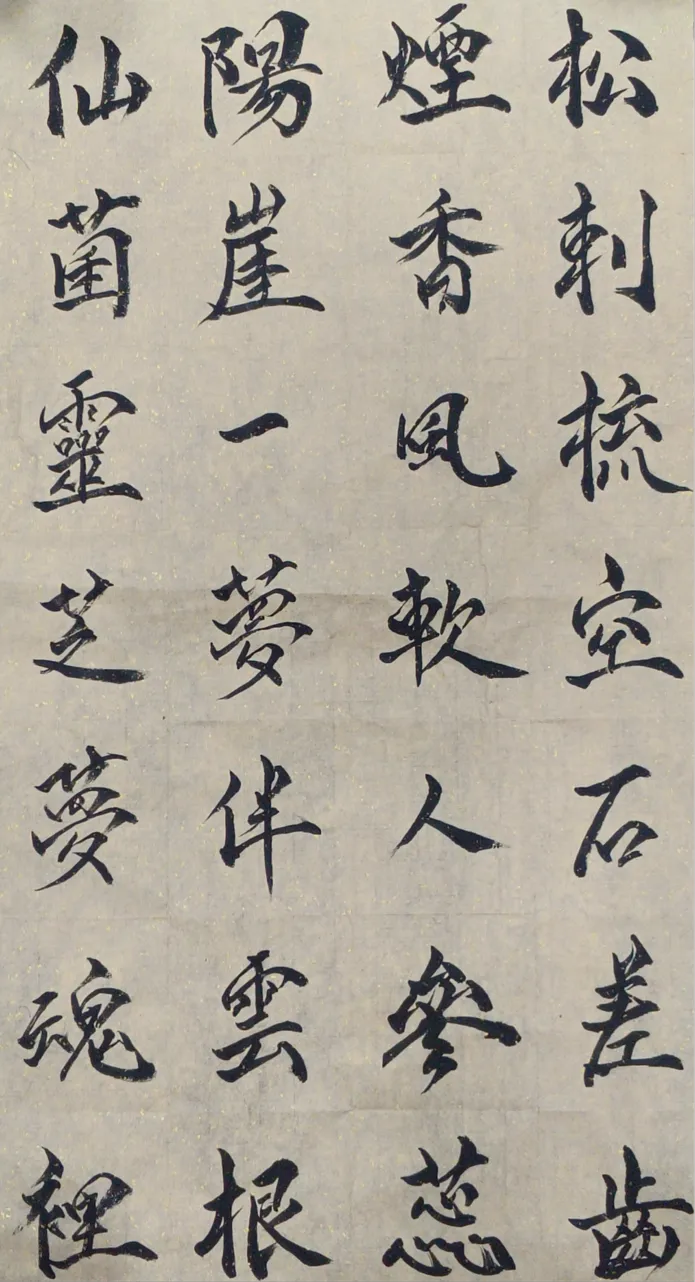 松刺梳空石差齒
煙香風軟人參蕊
陽崖一夢伴雲根
仙菌靈芝夢魂裡